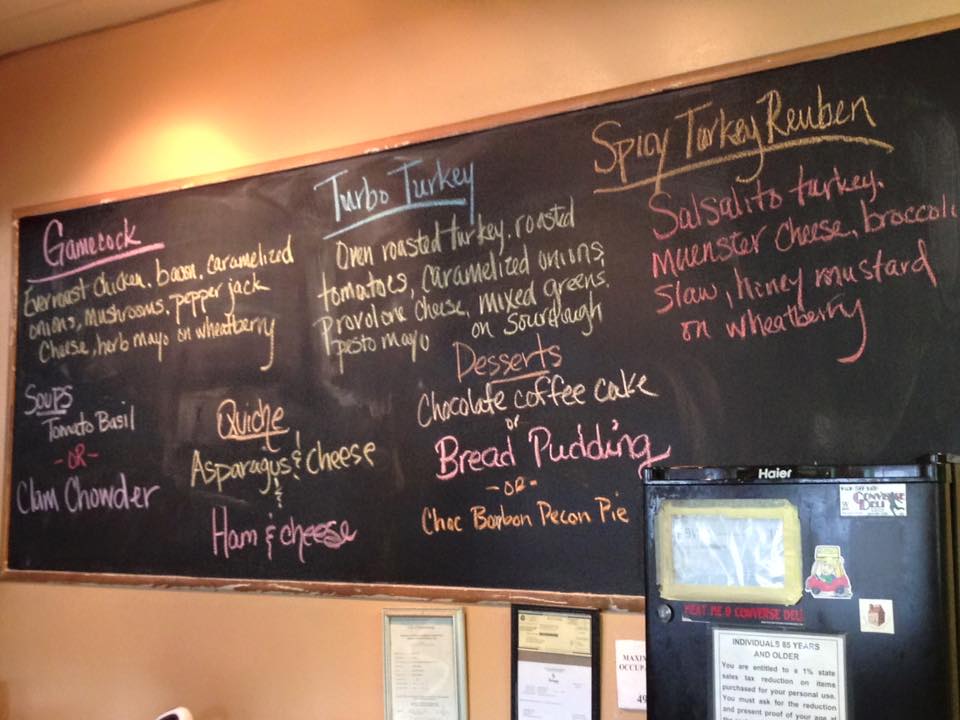 Gamecock
Everroast chicken, bacon, caramelized
onions, mushrooms, pepper jack
cheese, herb mayo on wheatberry
Turbo Turkey
Oven roasted turkey, roasted
tomatoes, caramelized onions,
Provolone cheese, mixed greens,
pesto mayo on Sourdough
Spicy Turkey Reuben
Salsalito turkey,
muenster cheese, broccoli
slaw, honey mustard
on wheatberry
Soups
Tomato Basil
-OR-
Clam Chowder
Quiche
Asparagus & cheese
&
Ham & cheese
Desserts
Chocolate coffee cake
or
Bread Pudding
-OR-
Choc Borbon Pecan Pie
Haier
CONVERSE
DELI
MEAT ME @ CONVERSE DELI
INDIVIDUALS 85 YEARS
AND OLDER
You are entitled to a 1% state
sales tax reduction on items
purchased for your personal use.
You must ask for the reduction
and present proof of your age at
MAXIM
OCCUP
49